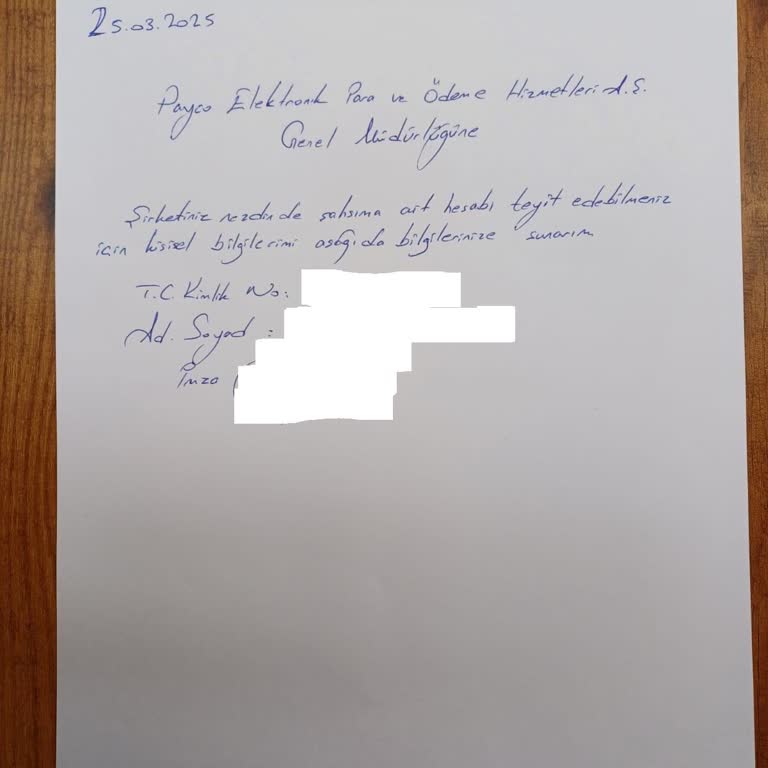 25.03.2025
Payco Elektronik Para ve Ödeme Hizmetleri A.Ş.
Genel Müdürlüğüne
Şirketiniz nezdinde şahsıma ait hesabı teyit edebilmeniz
için kişisel bilgilerimi aşağıda bilgilerinize sunarım
T.C. Kimlik No:
Ad. Soyad :
İmza